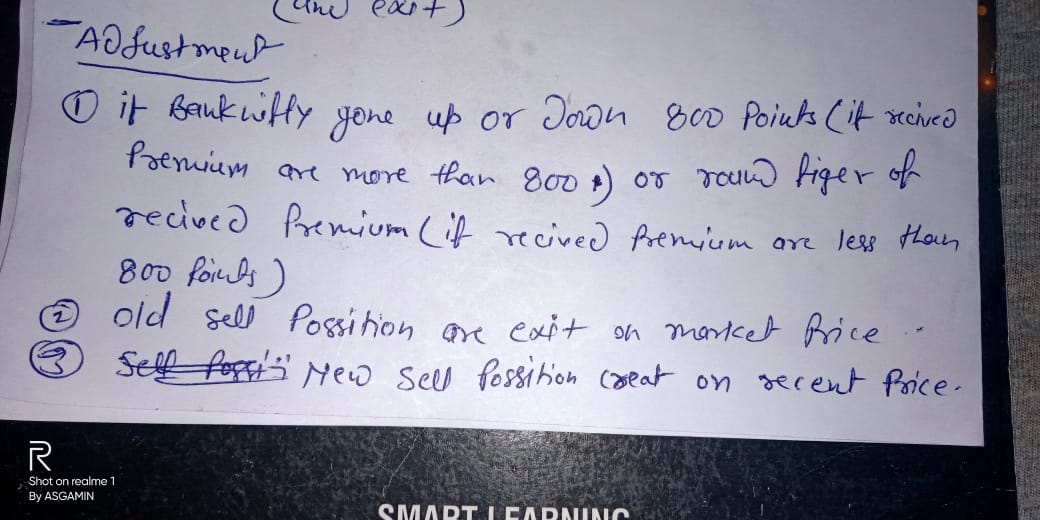 (and exit)
Adjustment
① if Banknifty gone up or Down 800 Points (if recived
Premium are more than 800) or round figer of
recived Premium (if recived Premium are less than
800 Points)
② old sell Possition are exit on market Price
③ New Sell Possition creat on recent Price.
R
Shot on realme 1
By ASGAMIN
SMART LEARNING